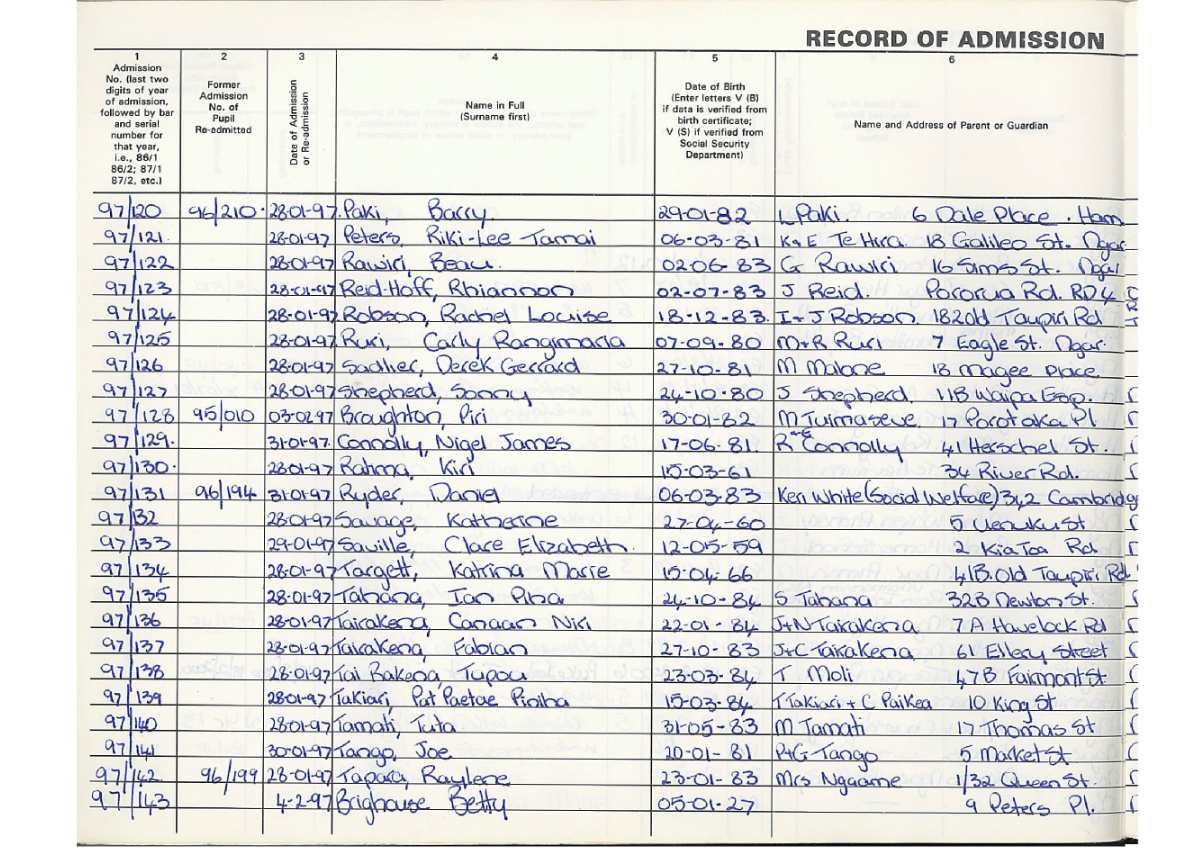 RECORD OF ADMISSION
1 2 3 4 5 6
Admission No. (last two digits of year of admission, followed by bar and serial number for that year, i.e., 86/1 86/2; 87/1 87/2, etc.)
Former Admission No. of Pupil Re-admitted
Date of Admission or Re-admission
Name in Full (Surname first)
Date of Birth (Enter letters V (B) if data is verified from birth certificate; V (S) if verified from Social Security Department)
Name and Address of Parent or Guardian
97/120 96/210 28-01-97 Paki, Barry 29-01-82 L Paki. 6 Dale Place. Ham
97/121 28-01-97 Peters, Riki-Lee Tamai 06-03-81 K & E Te Hira 18 Galileo St. Ngar
97/122 28-01-97 Rawiri, Beau. 02-06-83 G Rawiri 16 Sims St. Ngar
97/123 28-01-97 Reid-Hoff, Rhiannon 02-07-83 J Reid. Pororua Rd. RD4
97/124 28-01-97 Robson, Rachel Louise 18-12-83. I + J Robson. 182 Old Taupiri Rd
97/125 28-01-97 Ruri, Carly Rangimaria 07-09-80 M + R Ruri 7 Eagle St. Ngar.
97/126 28-01-97 Sadlier, Derek Gerrard 27-10-81 M Malone 18 Magee Place.
97/127 28-01-97 Shepherd, Sonny 24-10-80 J Shepherd. 11B Waipa Esp.
97/128 95/010 03-02-97 Broughton, Piri 30-01-82 M Tuimaseve. 17 Porotaka Pl
97/129. 31-01-97. Connolly, Nigel James 17-06-81. R + E Connolly 41 Herschel St.
97/130. 28-01-97 Rahma, Kiri 15-03-61 34 River Rd.
97/131 96/194 31-01-97 Ryder, Daniel 06-03-83 Keri White (Social Welfare) 342 Cambridge
97/132 28-01-97 Savage, Katherine 27-04-60 5 Uenuku St
97/133 29-01-97 Saville, Clare Elizabeth. 12-05-59 2 Kia Toa Rd.
97/134 28-01-97 Targett, Katrina Marre 15-04-66 41B. Old Taupiri Rd.
97/135 28-01-97 Tahana, Ian Piha 24-10-84 S Tahana 32B Newton St.
97/136 28-01-97 Tairakena, Canaan Niki 22-01-84 J + N Tairakena, 7 A Havelock Rd
97/137 28-01-97 Tairakena, Fabian 27-10-83 J + C Tairakena, 61 Ellery Street
97/138 28-01-97 Tai Rakena, Tupou 23-03-84 T Moli 47B Fairmont St
97/139 28-01-97 Takiari, Pat Paetae Piniha 15-03-84 T Takiari + C Paikea 10 King St
97/140 28-01-97 Tamati, Tuta 31-05-83 M Tamati 17 Thomas St
97/141 30-01-97 Tango, Joe 20-01-81 P + G Tango 5 Market St
97/142 96/199 28-01-97 Tapara, Raylene 23-01-83 Mrs Ngaame 1/32 Queen St.
97/143 4-2-97 Brighouse Betty 05-01-27 9 Peters Pl.